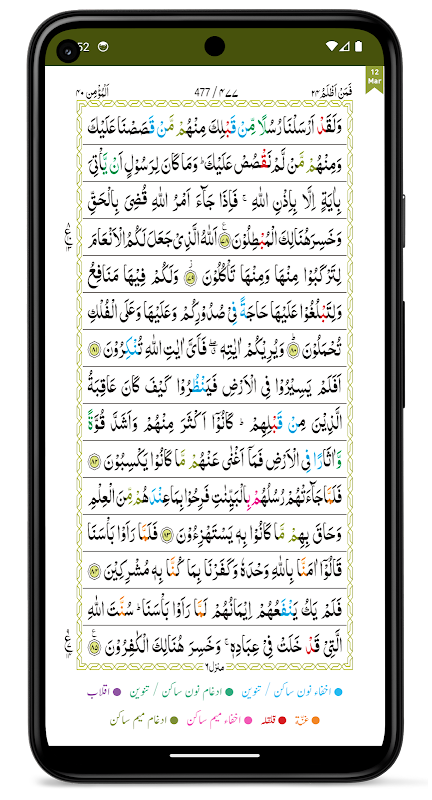 52
12
Mar
فَمَنْ اَظْلَمُ ٢٤
477 / ٤٧٧
اَلْمُؤْمِن ٤٠
وَلَقَدْ اَرْسَلْنَا رُسُلًا مِّنْ قَبْلِكَ مِنْهُمْ مَّنْ قَصَصْنَا عَلَيْكَ
وَمِنْهُمْ مَّنْ لَّمْ نَقْصُصْ عَلَيْكَ ؕ وَمَا كَانَ لِرَسُوْلٍ اَنْ يَّاْتِىَ
بِاٰيَةٍ اِلَّا بِاِذْنِ اللّٰهِ ۚ فَاِذَا جَآءَ اَمْرُ اللّٰهِ قُضِىَ بِالْحَقِّ
وَخَسِرَ هُنَالِكَ الْمُبْطِلُوْنَ ﴿٧٨﴾ اَللّٰهُ الَّذِىْ جَعَلَ لَكُمُ الْاَنْعَامَ
لِتَرْكَبُوْا مِنْهَا وَمِنْهَا تَاْكُلُوْنَ ﴿٧٩﴾ وَلَكُمْ فِيْهَا مَنَافِعُ
وَلِتَبْلُغُوْا عَلَيْهَا حَاجَةً فِىْ صُدُوْرِكُمْ وَعَلَيْهَا وَعَلَى الْفُلْكِ
تُحْمَلُوْنَ ﴿٨٠﴾ وَيُرِيْكُمْ اٰيٰتِهٖ ۖ فَاَىَّ اٰيٰتِ اللّٰهِ تُنْكِرُوْنَ ﴿٨١﴾
اَفَلَمْ يَسِيْرُوْا فِى الْاَرْضِ فَيَنْظُرُوْا كَيْفَ كَانَ عَاقِبَةُ
الَّذِيْنَ مِنْ قَبْلِهِمْ ؕ كَانُوْۤا اَكْثَرَ مِنْهُمْ وَاَشَدَّ قُوَّةً
وَّاٰثَارًا فِى الْاَرْضِ فَمَاۤ اَغْنٰى عَنْهُمْ مَّا كَانُوْا يَكْسِبُوْنَ ﴿٨٢﴾
فَلَمَّا جَآءَتْهُمْ رُسُلُهُمْ بِالْبَيِّنٰتِ فَرِحُوْا بِمَا عِنْدَهُمْ مِّنَ الْعِلْمِ
وَحَاقَ بِهِمْ مَّا كَانُوْا بِهٖ يَسْتَهْزِءُوْنَ ﴿٨٣﴾ فَلَمَّا رَاَوْا بَاْسَنَا
قَالُوْۤا اٰمَنَّا بِاللّٰهِ وَحْدَهٗ وَكَفَرْنَا بِمَا كُنَّا بِهٖ مُشْرِكِيْنَ ﴿٨٤﴾
فَلَمْ يَكُ يَنْفَعُهُمْ اِيْمَانُهُمْ لَمَّا رَاَوْا بَاْسَنَا ؕ سُنَّتَ اللّٰهِ
الَّتِىْ قَدْ خَلَتْ فِىْ عِبَادِهٖ ۚ وَخَسِرَ هُنَالِكَ الْكٰفِرُوْنَ ﴿٨٥﴾
منزل ٦
اخفاء نون ساکن / تنوین ادغام نون ساکن / تنوین اقلاب
غنّة قلقله اخفاء میم ساکن ادغام میم ساکن